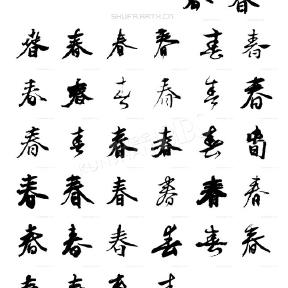 春 春
SHUFA.ARTX.CN
春 春 春 春 春 春
春 春 春 春 春 春
春 春 春 春 春 春
春 春 春 春 春 春
春 春 春 春 春 春
春 春 春 春